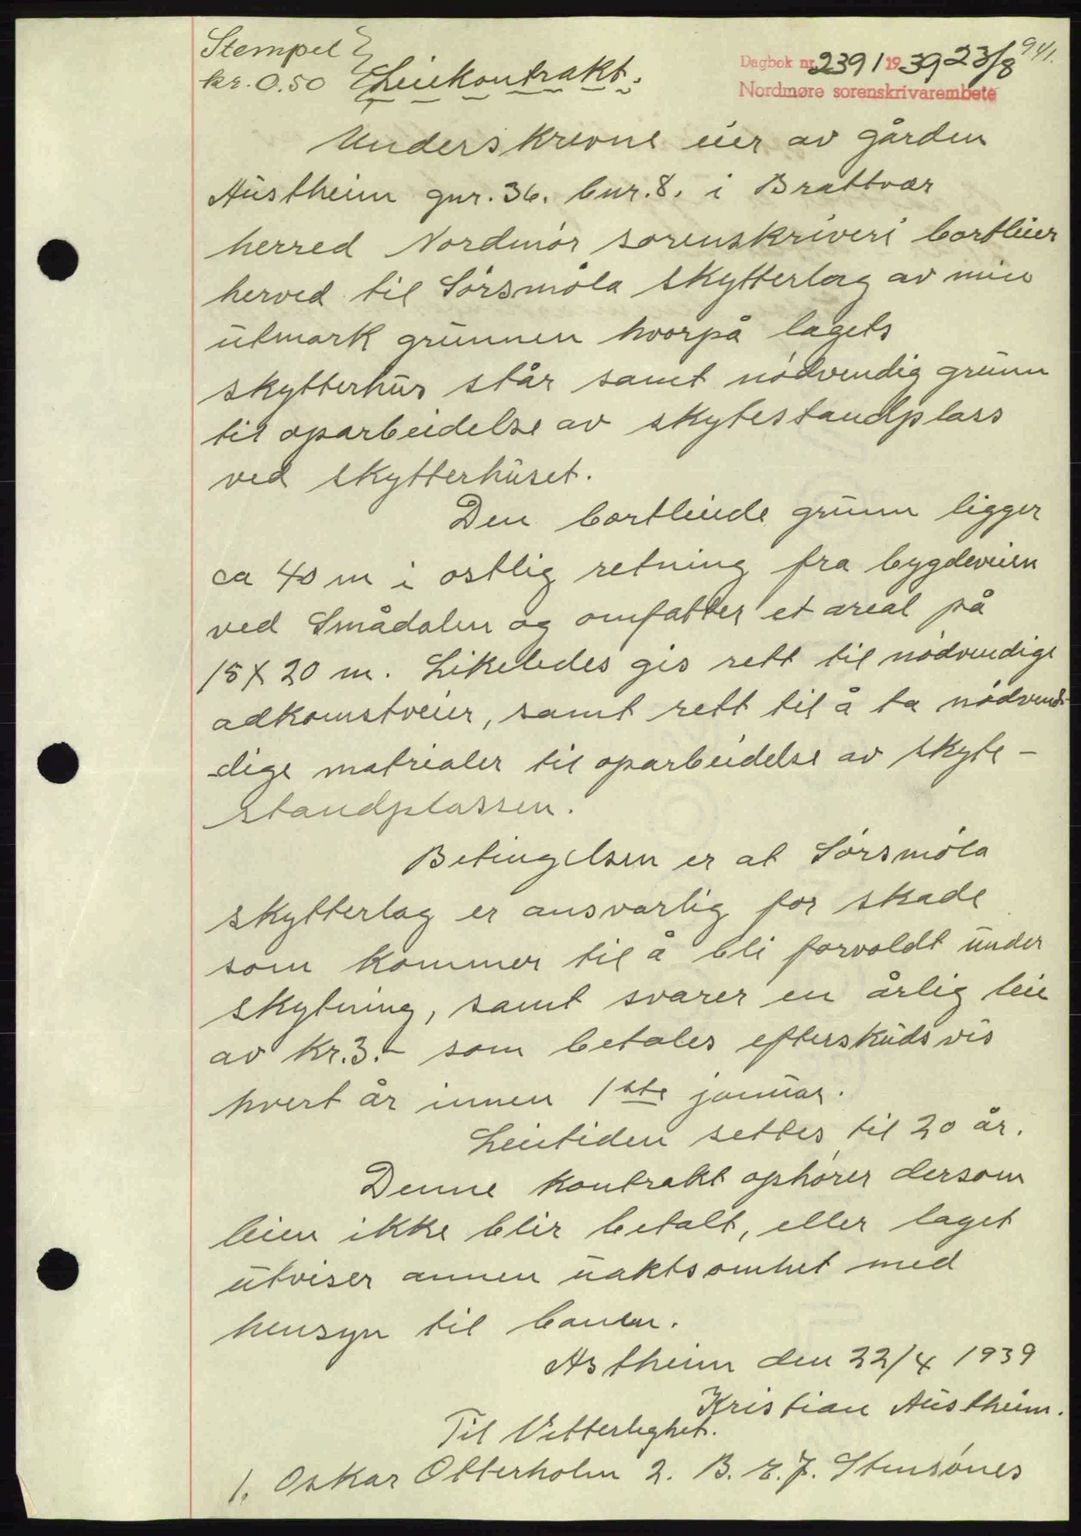 941.
Stempel }
kr. 0.50 Leiekontrakt.
Dagbok nr. 2391 1939 23/8
Nordmøre sorenskrivarembete
Underskrevne eier av gården
Austheim gnr. 36. bnr. 8. i Brattvær
herred Nordmør sorenskriveri bortleier
herved til Sørsmøla skytterlag av min
utmark grunnen hvorpå lagets
skytterhus står samt nødvendig grunn
til oparbeidelse av skytestandplass
ved skytterhuset.
Den bortleiede grunn ligger
ca 40 m i østlig retning fra bygdeveien
ved Smådalen og omfatter et areal på
15 X 20 m. Likeledes gis rett til nødvendige
adkomstveier, samt rett til å ta nødven-
-dige matrialer til oparbeidelse av skyte-
standplassen.
Betingelsen er at Sørsmøla
skytterlag er ansvarlig for skade
som kommer til å bli forvoldt under
skytning, samt svarer en årlig leie
av kr. 3.- som betales efterskudsvis
hvert år innen 1ste januar.
Leietiden settes til 20 år.
Denne kontrakt ophører dersom
leien ikke blir betalt, eller laget
utviser annen uaktsomhet med
hensyn til banen.
Astheim den 22/4 1939
Kristian Austheim.
Til Vitterlighet.
1. Oskar Otterholm 2. B. E. J. Stensønes